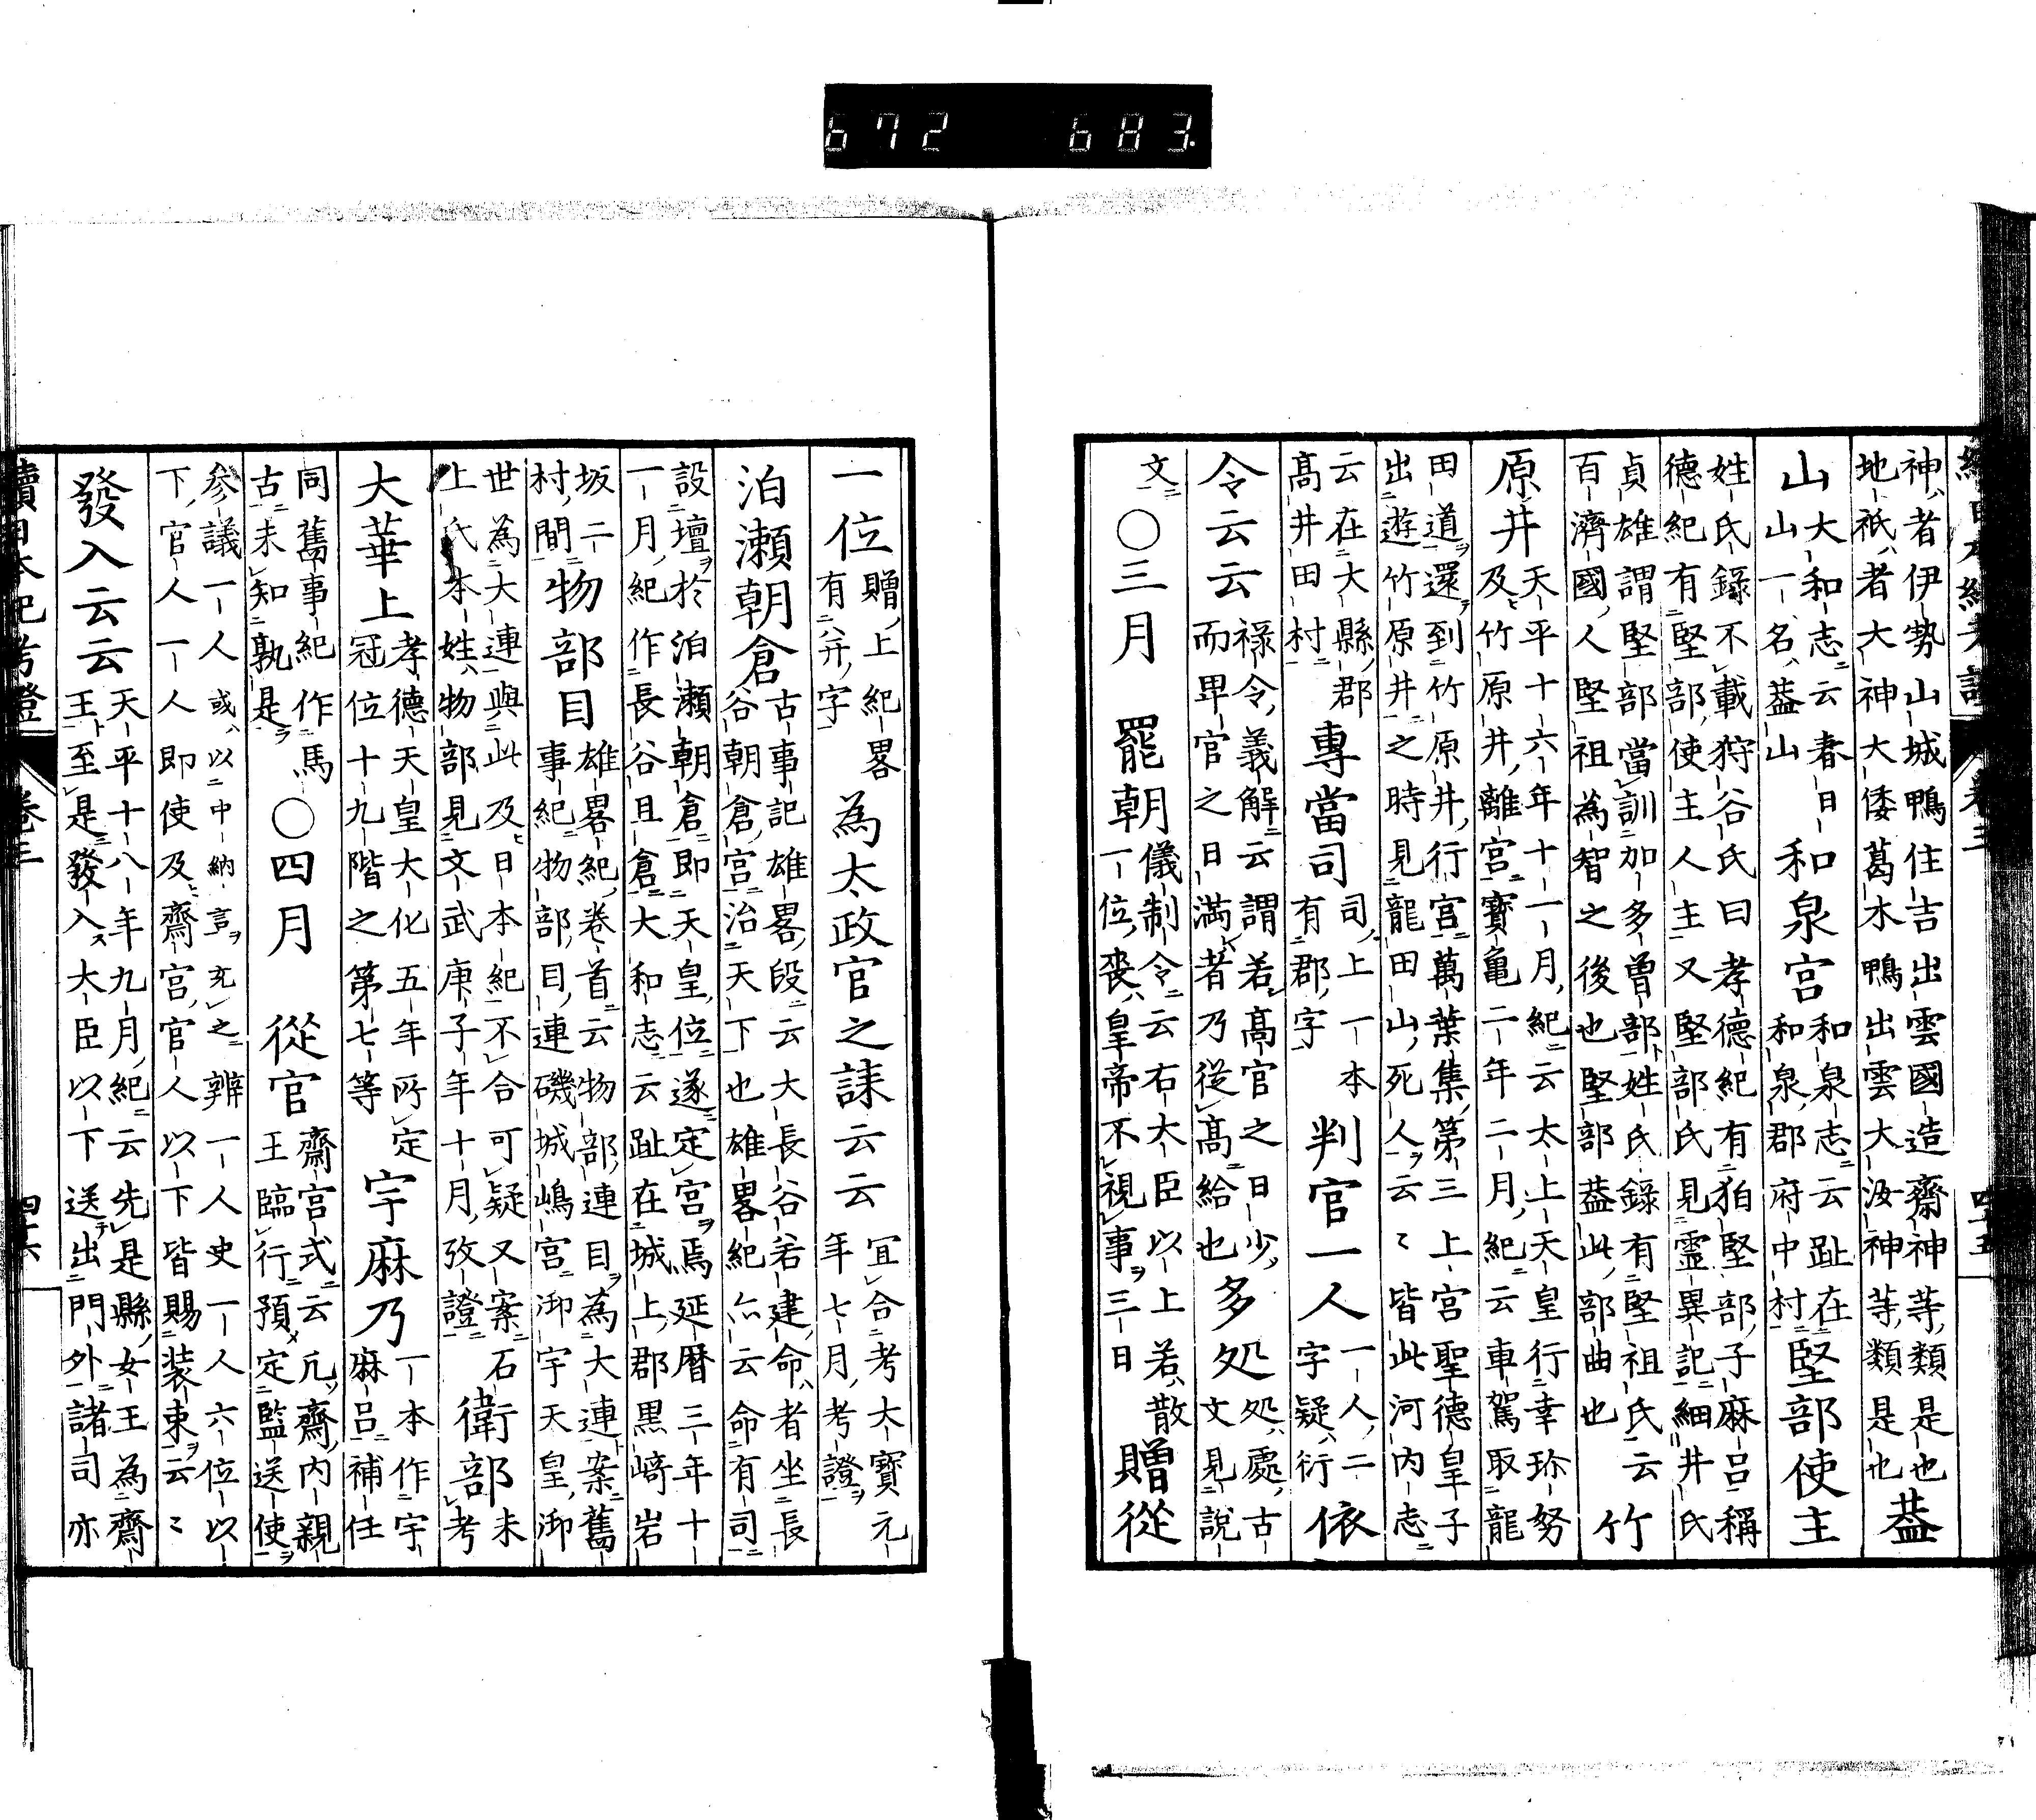 672 683
神者伊勢山城鴨住吉出雲國造齋神等類是也
地祇者大神大倭葛木鴨出雲大汝神等類是也
葢
山大和志云春日
山一名葢山
和泉宮
和泉志云趾在
和泉郡府中村
堅部使主
姓氏錄不載狩谷氏曰孝德紀有狛堅部子麻呂稱
德紀有堅部使主人主又堅部氏見霊異記細井氏
貞雄謂堅部當訓加多曽部姓氏錄有堅祖氏云
百濟國人堅祖為智之後也堅部葢此部曲也
竹
原井
天平十六年十一月紀云太上天皇行幸珍努
及竹原井離宮寶亀二年二月紀云車駕取龍
田道還到竹原井行宮萬葉集第三上宮聖德皇子
出遊竹原井之時見龍田山死人云〻皆此河内志
云在大縣郡
高井田村
專當司
司上一本
有郡字
判官一人
一人二
字疑衍
依
令云云
禄令義解云謂若高官之日少
而卑官之日満者乃従高給也
多処
処處古
文見說
文
〇三月
罷朝
儀制令云右大臣以上若散
一位喪皇帝不視事三日
贈從
續日本紀考證
卷三
四十五
一位
贈上紀畧
有并字
為太政官之誄云云
宜合考大寶元
年七月考證
泊瀬朝倉
古事記雄畧段云大長谷若建命者坐長
谷朝倉宮治天下也雄畧紀亦云命有司
設壇於泊瀬朝倉即天皇位遂定宮焉延暦三年十
一月紀作長谷旦倉大和志云趾在城上郡黒﨑岩
坂二
村間
物部目
雄畧紀卷首云物部連目為大連案舊
事紀物部目連磯城嶋宮御宇天皇御
世為大連與此及日本紀不合可疑又案石
上氏本姓物部見文武庚子年十月攷證
衛部
未
考
大華上
孝德天皇大化五年所定
冠位十九階之第七等
宇麻乃
一本作宇
麻呂補任
同舊事紀作馬
古未知孰是
〇四月
從官
齋宮式云凢齋内親
王臨行預定監送使
参議一人或以中納言充之辨一人史一人六位以
下官人一人即使及齋宮官人以下皆賜装束云〻
發入云云
天平十八年九月紀云先是縣女王為齋
王至是發入大臣以下送出門外諸司亦
續日本紀考證
卷三
四十六